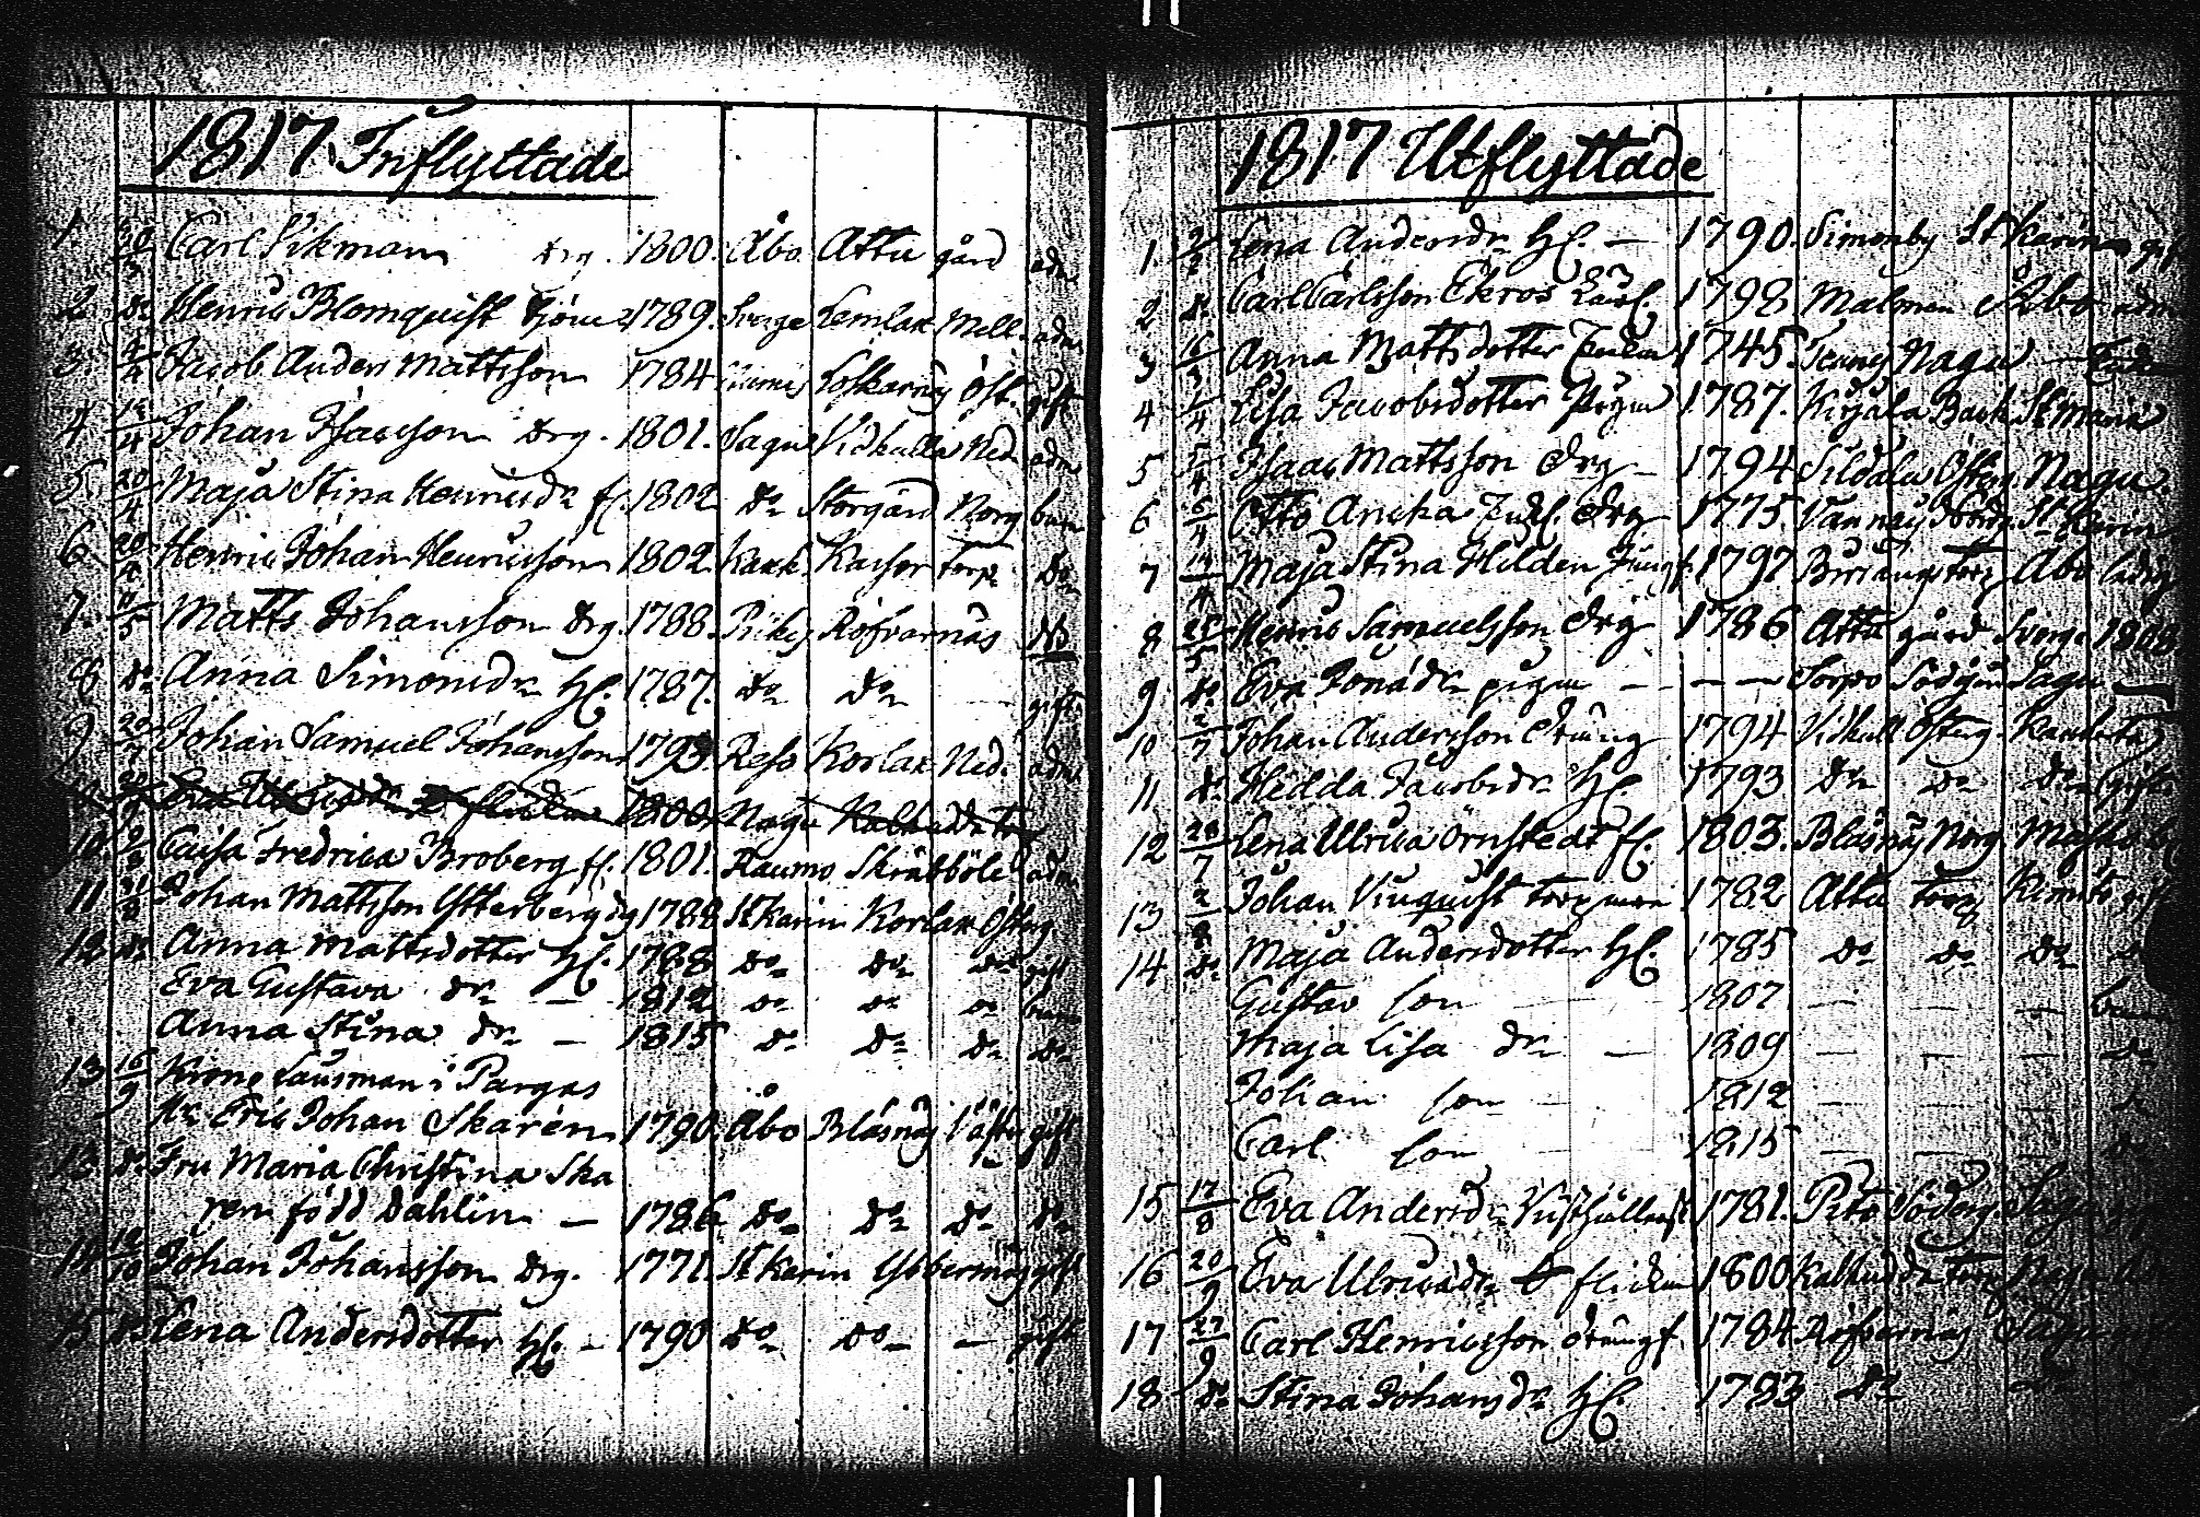 1817 Inflyttade
1. 20/3 Carl Vikman drg. 1800. Åbo Attu gård adm
2 do Henric Blomquist 1789. Sverge Lemlax Mell. adm
3. 4/4 Jacob Anders Mattsson 1784 Lofkarnäs Öst. gift
4 /4 Johan Isacsson drg. 1801. Sagu Vidkulla Ned. adm
5. 20/4 Maja Stina Henricsdr fl. 1802 do Storgård Norg barn
6 20/4 Henric Johan Henricsson 1802. Kaxk. torp do
7. /5 Matts Johansson drg. 1788. Piikis Röfvarnäs
8 do Anna Simonsdr H. 1787. do do — gift
9 20/7 Johan Samuel Johansson 1793. Reso Korlax Ned. adm
1800. Nagu Kalkudda torp
10. 9/8 Caisa Fredrica Broberg fl. 1801. Raumo Skräbböle adm
11 31/8 Johan Mattsson Ytterberg dg 1788 St Karin Korlax Österg
12 do Anna Mattsdotter H. 1788 do do do gift
Eva Gustava dr — 1812 do do do barn
Anna Stina dr — 1815 do do do do
13 16/9 Krono Länsman i Pargas
Hr Eric Johan Skarén 1790. Åbo Bläsnäs Väster gift
13 do Fru Maria Christina Ska
ren född Dahlin — 1786 do do do do
14 12/10 Johan Johansson drg. 1771. St Karin Ybbersnäs gift
15 do Lena Andersdotter H. — 1790 do do — gift
1817 Utflyttade
1. 2/2 Lena Andersdr H. — 1790. Simonby St Karins gift
2 do Carl Carlsson Ekros 1798 Malmen Åbo adm
3 16/3 Anna Mattsdotter Enka 1745. Tennäs Nagu — Enka
4 1/4 Lisa Jacobsdotter Piga 1787. Kirjala Back St Marie
5 5/4 Isaac Mattsson drg — 1794 Sildala Österg Nagu.
6 6/4 Otto drg 1775. Vannäs Norrg St Karin
7 14/4 Maja Stina Hilden Jungf. 1797 torp Åbo ledig
8 28/5 Henric Samuelsson drg 1786 Attu gård Sverge 1808
9 do Eva Jonædr piga — — — Sorpo Södgård Sagu —
10 2/7 Johan Andersson dräng 1794 Vidkull Österg.
11 do Hedda Jacobsdr H 1793 do do do gift
12 28/7 Lena Ulrica Örnstedt fl. 1803. Bläsnäs Norg Masku
13 2/8 Johan Vinquist torpare 1782 Attu torp Kimito gift
14 do Maja Andersdotter H. 1785 do do do do
Gustav son — 1807 — — — barn
Maja Lisa dr — 1809 — — — do
Johan son — 1812 — — — do
Carl son — 1815 — — — do
15 17/8 Eva Andersdr 1781. Söderg. Sagu
16 20/9 Eva Ulricædr flickan 1800 Kalkudda torp Nagu
17 27/9 Carl Henricsson drüng f. 1784 Röfvarnäs Sagu
18 do Stina Johansdr H. 1793 do do